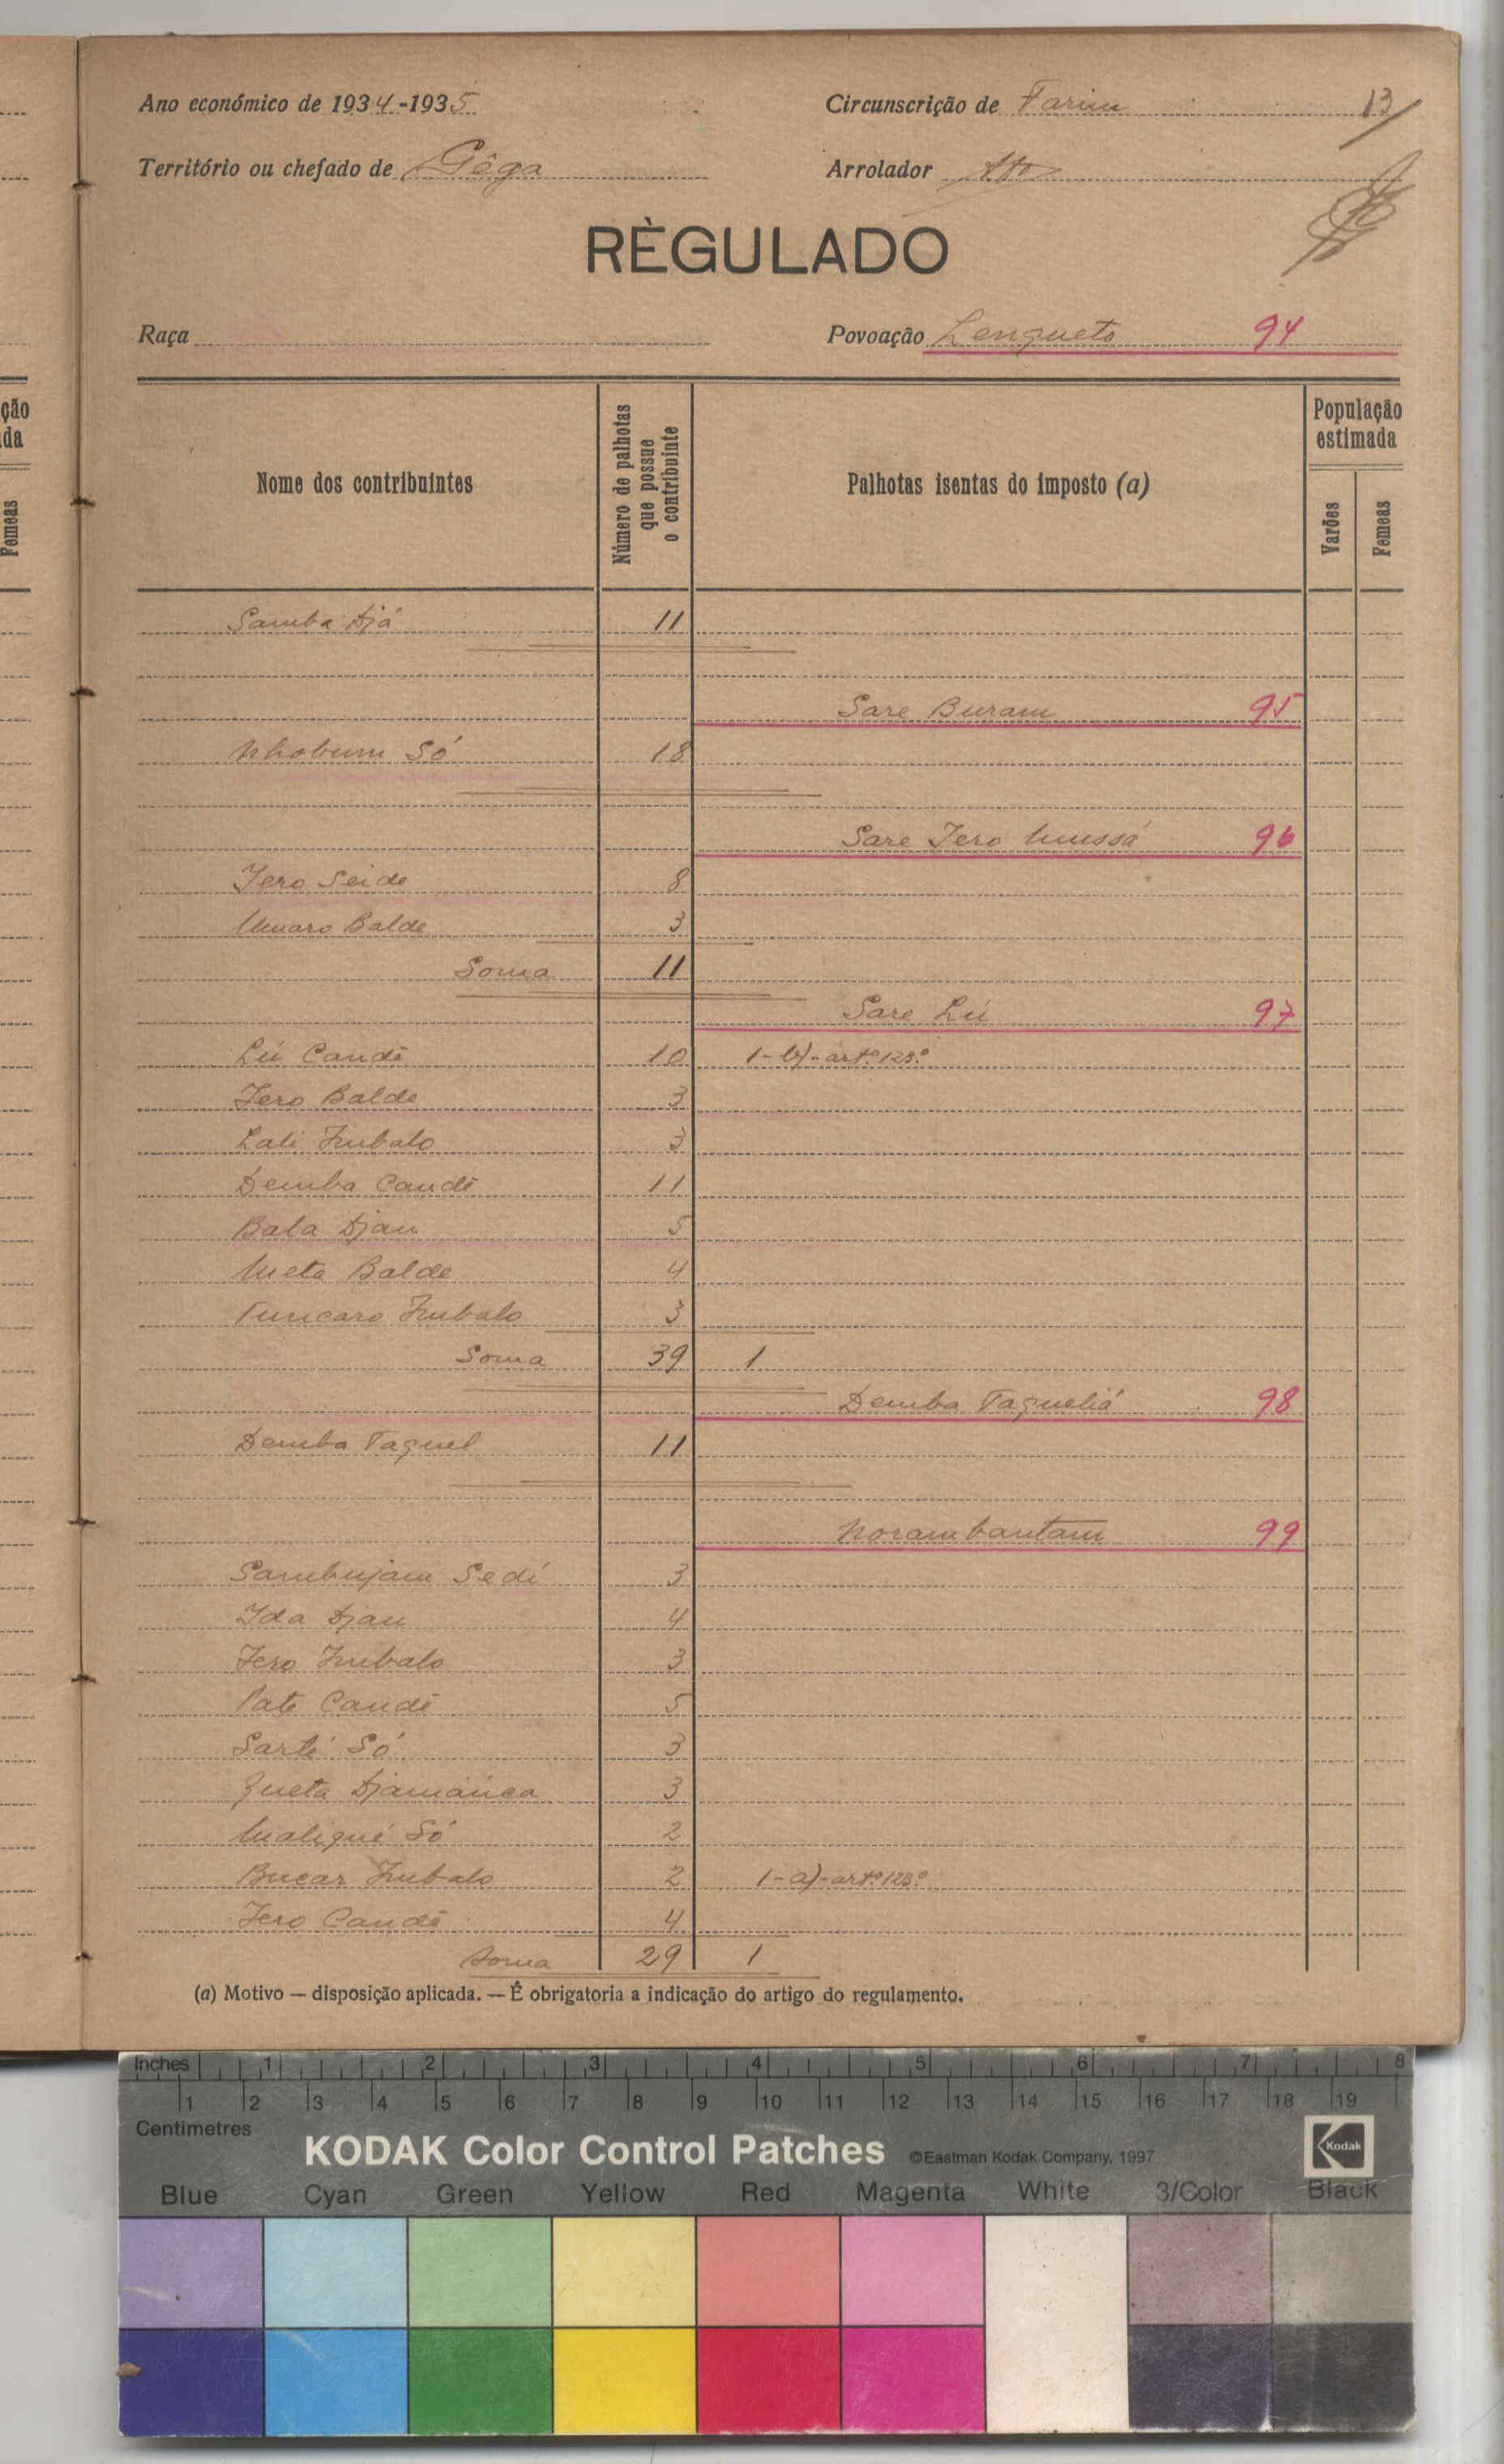 Ano económico de 1934-1935 Circunscrição de Farim 13
Território ou chefado de Gêga Arrolador
RÈGULADO
Raça Povoação Lenqueto 94
Nome dos contribuintes
Número de palhotas que possue o contribuinte
Palhotas isentas do imposto (a)
População estimada
Varões
Femeas
Samba Djá 11
Sare Buram 95
Nhobum Só 18
Sare Jero Mussá 96
Jero Seide 8
Umaro Balde 3
Soma 11
Sare Lú 97
Lú Candê 10 1-b)-artº128.º
Jero Balde 3
Lali Imbalo 3
Demba Candê 11
Bala Djau 5
Meta Balde 4
Funcaro Imbalo 3
Soma 39 1
Demba Taqueliá 98
Demba Taquel 11
Norambantam 99
Sambujam Sedí 3
Ida Djau 4
Jero Imbalo 3
Pate Candê 5
Sarté Só 3
Queta Djamanca 3
Maliqué Só 2
Bucar Imbalo 2 1-a)-artº128º
Jero Candê 4
Soma 29 1
(a) Motivo — disposição aplicada. — É obrigatoria a indicação do artigo do regulamento.
ção
da
Femeas
Inches 1 2 3 4 5 6 7 8
1 2 3 4 5 6 7 8 9 10 11 12 13 14 15 16 17 18 19
Centimetres
KODAK Color Control Patches ©Eastman Kodak Company, 1997 Kodak
Blue Cyan Green Yellow Red Magenta White 3/Color Black